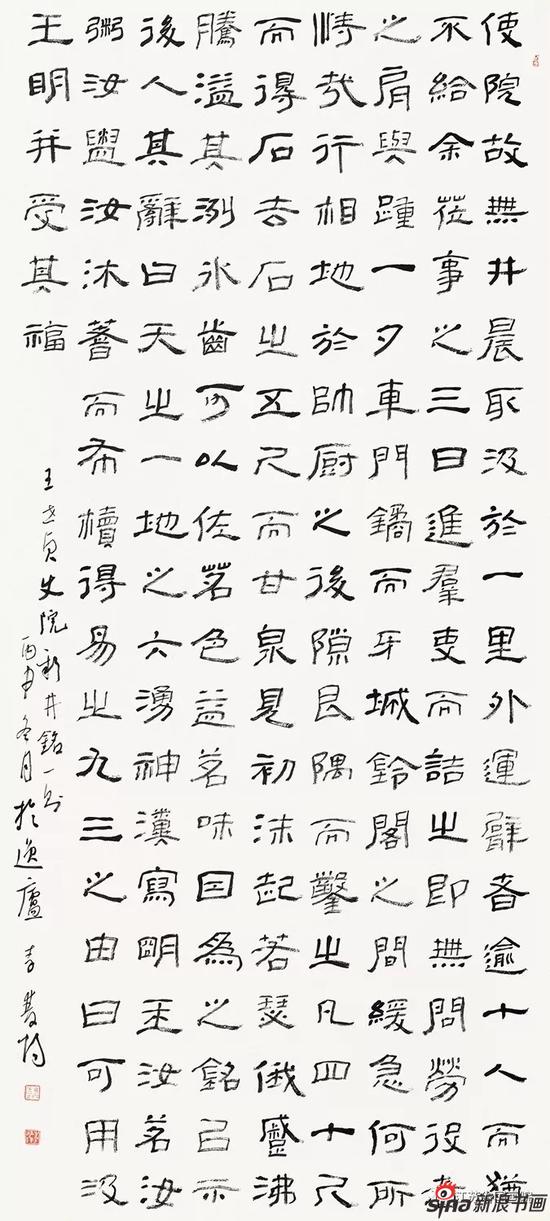 使院故無井晨取汲於一里外運甓者逾十人而猶
不給余蒞事之三日進羣吏而詰之即無問勞役者
之肩與踵一夕車門鐍而牙城鈴閣之間緩急何所
恃哉行相地於帥廚之後隙艮隅而鑿之凡四十尺
而得石去石之五尺而甘泉見初沫起若瑟俄觱沸
騰溢其冽冰齒可以佐茗色益茗味因為之銘以示
後人其辭曰天之一地之六湧神瀵寫明玉汝茗汝
粥汝盥汝沐蓍而希櫝得易之九三之由曰可用汲
王明并受其福
王世貞使院新井銘一則
丙申冬月於逸廬
sina新浪书画